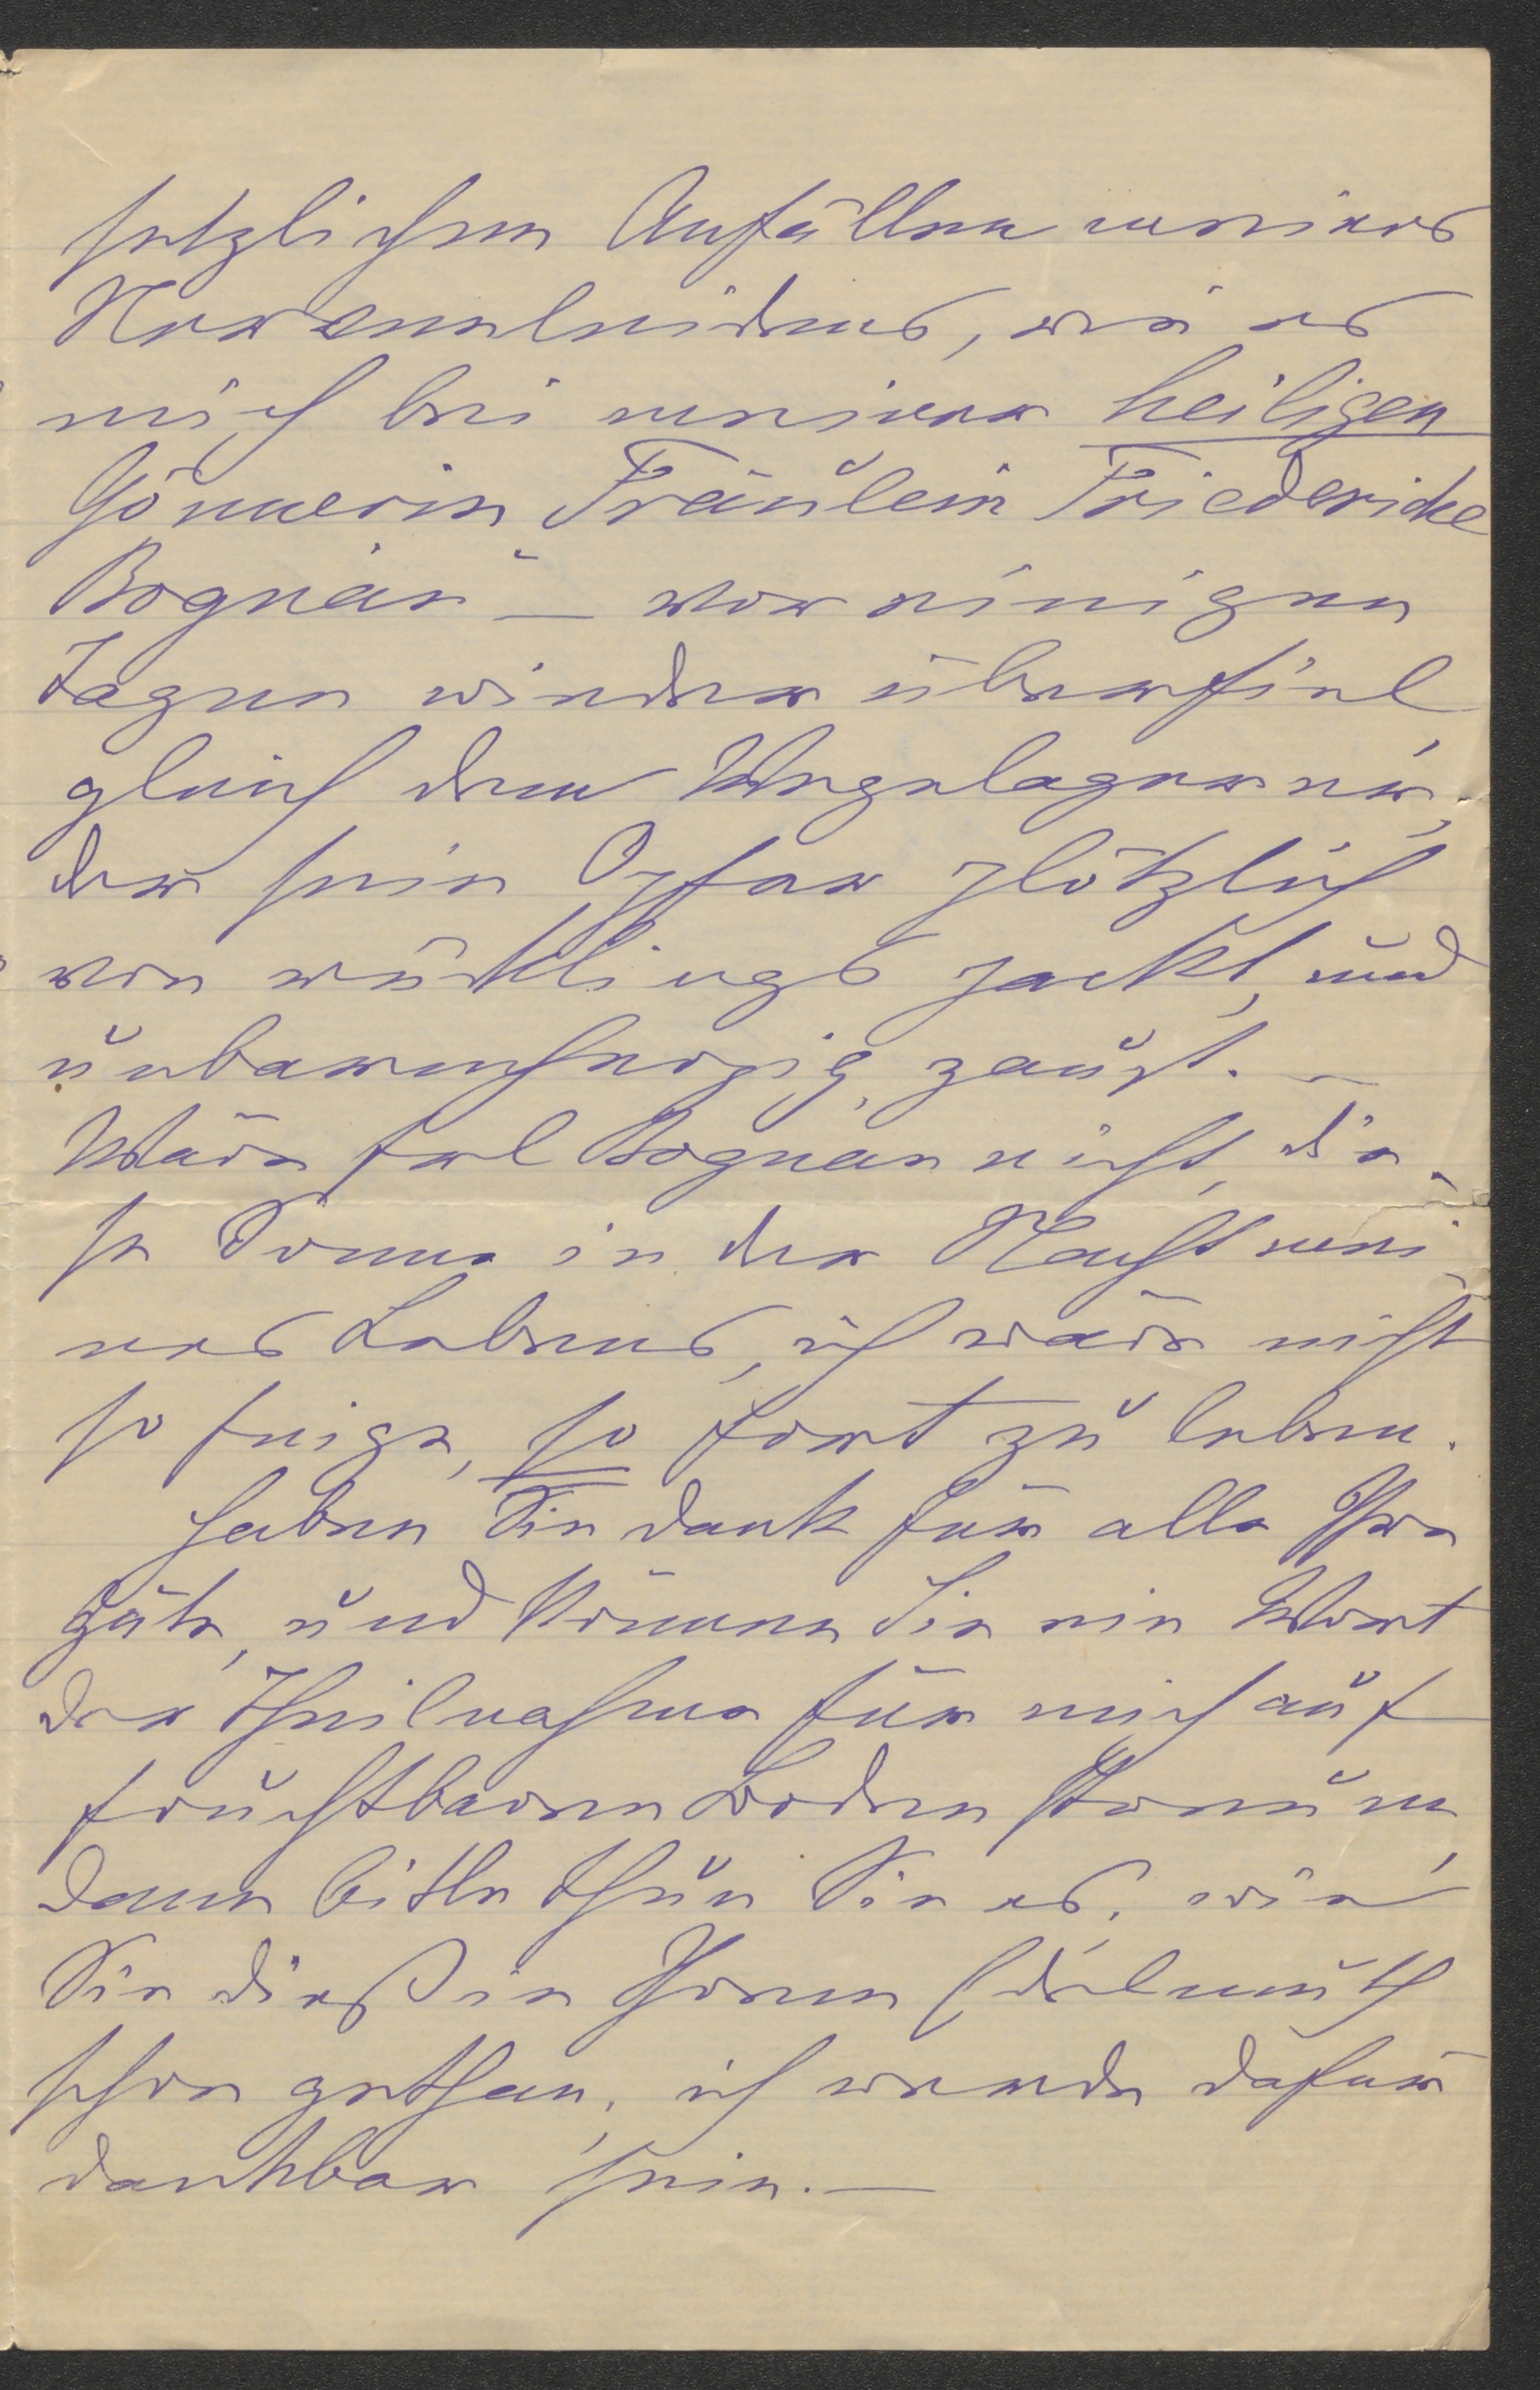 setzlichen Anfällen meines
Nervenleidens, wie es
mich bei meiner heiligen
Gönnerin Fräulein Friedericke
Bognár – vor einigen
Tagen wieder überfiel
gleich dem Wegelagerer,
der sein Opfer plötzlich
von rücklings packt, und
unbarmherzig, zaust. –
Wäre Frl Bognár nicht, die-
se Sonne in der Nacht mei-
nes Lebens, ich wäre nicht
so feige, so fort zu leben.
Haben Sie Dank für alle Ihre
Güte, und können Sie ein Wort
der Theilnahme für mich auf
fruchtbaren Boden streuen,
dann bitte thun Sie es, wie
Sie dieß in Ihrem Edelmuth
schon gethan, ich werde dafür
dankbar sein. –